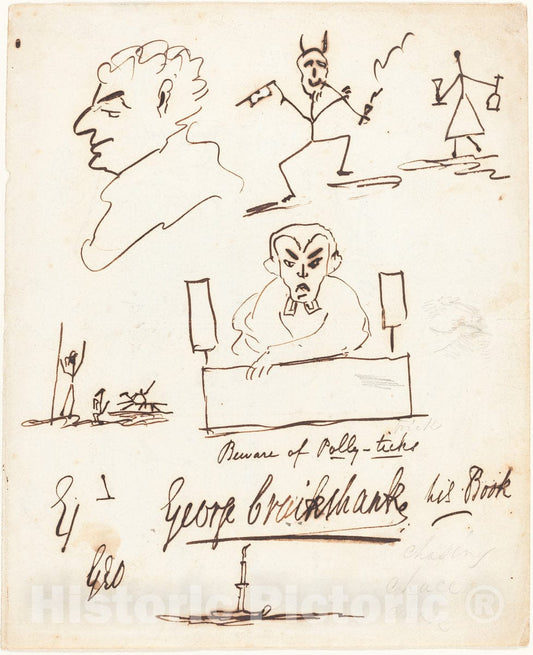 Beware of Polly-ticks
George Cruikshank, his Book
Geo
Historic Pictoric ®